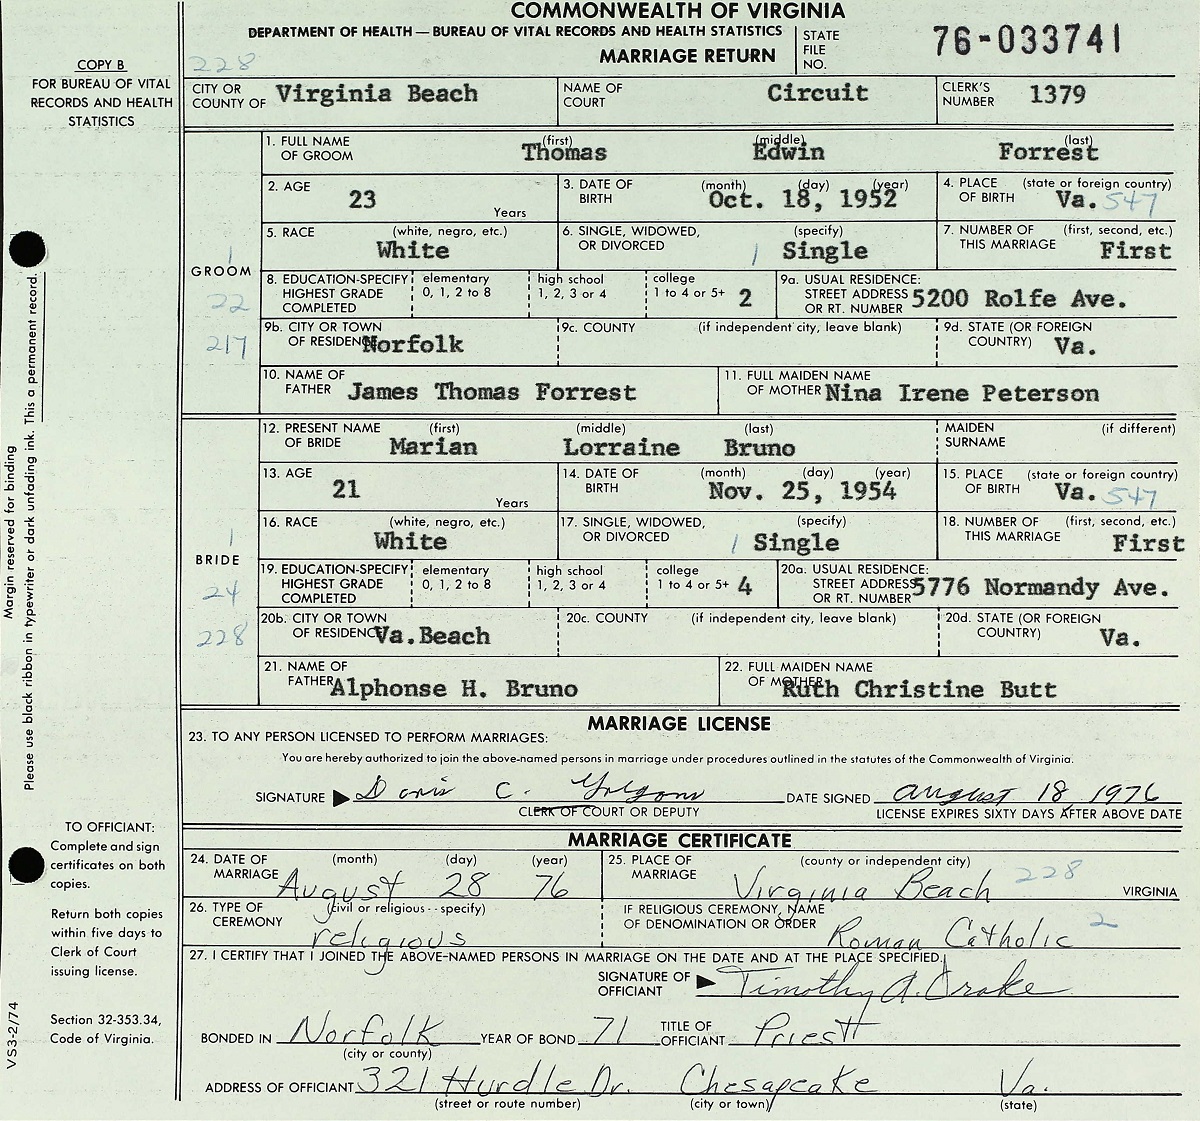 COMMONWEALTH OF VIRGINIA
DEPARTMENT OF HEALTH — BUREAU OF VITAL RECORDS AND HEALTH STATISTICS
MARRIAGE RETURN
STATE FILE NO. 76-033741
COPY B
FOR BUREAU OF VITAL
RECORDS AND HEALTH
STATISTICS
228
CITY OR COUNTY OF Virginia Beach NAME OF COURT Circuit CLERK'S NUMBER 1379
GROOM
1
22
217
1. FULL NAME OF GROOM (first) Thomas (middle) Edwin (last) Forrest
2. AGE 23 Years 3. DATE OF BIRTH (month) (day) (year) Oct. 18, 1952 4. PLACE OF BIRTH (state or foreign country) Va. 547
5. RACE (white, negro, etc.) White 6. SINGLE, WIDOWED, OR DIVORCED (specify) 1 Single 7. NUMBER OF THIS MARRIAGE (first, second, etc.) First
8. EDUCATION-SPECIFY HIGHEST GRADE COMPLETED elementary 0, 1, 2 to 8 high school 1, 2, 3 or 4 college 1 to 4 or 5+ 2 9a. USUAL RESIDENCE: STREET ADDRESS OR RT. NUMBER 5200 Rolfe Ave.
9b. CITY OR TOWN OF RESIDENCE Norfolk 9c. COUNTY (if independent city, leave blank) 9d. STATE (OR FOREIGN COUNTRY) Va.
10. NAME OF FATHER James Thomas Forrest 11. FULL MAIDEN NAME OF MOTHER Nina Irene Peterson
BRIDE
1
24
228
12. PRESENT NAME OF BRIDE (first) Marian (middle) Lorraine (last) Bruno MAIDEN SURNAME (if different)
13. AGE 21 Years 14. DATE OF BIRTH (month) (day) (year) Nov. 25, 1954 15. PLACE OF BIRTH (state or foreign country) Va. 547
16. RACE (white, negro, etc.) White 17. SINGLE, WIDOWED, OR DIVORCED (specify) 1 Single 18. NUMBER OF THIS MARRIAGE (first, second, etc.) First
19. EDUCATION-SPECIFY HIGHEST GRADE COMPLETED elementary 0, 1, 2 to 8 high school 1, 2, 3 or 4 college 1 to 4 or 5+ 4 20a. USUAL RESIDENCE: STREET ADDRESS OR RT. NUMBER 5776 Normandy Ave.
20b. CITY OR TOWN OF RESIDENCE Va.Beach 20c. COUNTY (if independent city, leave blank) 20d. STATE (OR FOREIGN COUNTRY) Va.
21. NAME OF FATHER Alphonse H. Bruno 22. FULL MAIDEN NAME OF MOTHER Ruth Christine Butt
MARRIAGE LICENSE
23. TO ANY PERSON LICENSED TO PERFORM MARRIAGES:
You are hereby authorized to join the above-named persons in marriage under procedures outlined in the statutes of the Commonwealth of Virginia.
SIGNATURE Doris C. DATE SIGNED August 18, 1976
CLERK OF COURT OR DEPUTY LICENSE EXPIRES SIXTY DAYS AFTER ABOVE DATE
MARRIAGE CERTIFICATE
24. DATE OF MARRIAGE (month) (day) (year) August 28 76 25. PLACE OF MARRIAGE (county or independent city) Virginia Beach 228 VIRGINIA
26. TYPE OF CEREMONY (civil or religious - - specify) religious IF RELIGIOUS CEREMONY, NAME OF DENOMINATION OR ORDER Roman Catholic 2
27. I CERTIFY THAT I JOINED THE ABOVE-NAMED PERSONS IN MARRIAGE ON THE DATE AND AT THE PLACE SPECIFIED.
SIGNATURE OF OFFICIANT Timothy A. Drake
BONDED IN Norfolk YEAR OF BOND 71 TITLE OF OFFICIANT Priest
(city or county)
ADDRESS OF OFFICIANT 321 Hurdle Dr. Chesapeake Va.
(street or route number) (city or town) (state)
Margin reserved for binding
Please use black ribbon in typewriter or dark unfading ink. This a permanent record.
TO OFFICIANT:
Complete and sign
certificates on both
copies.
Return both copies
within five days to
Clerk of Court
issuing license.
Section 32-353.34,
Code of Virginia.
VS3-2/74